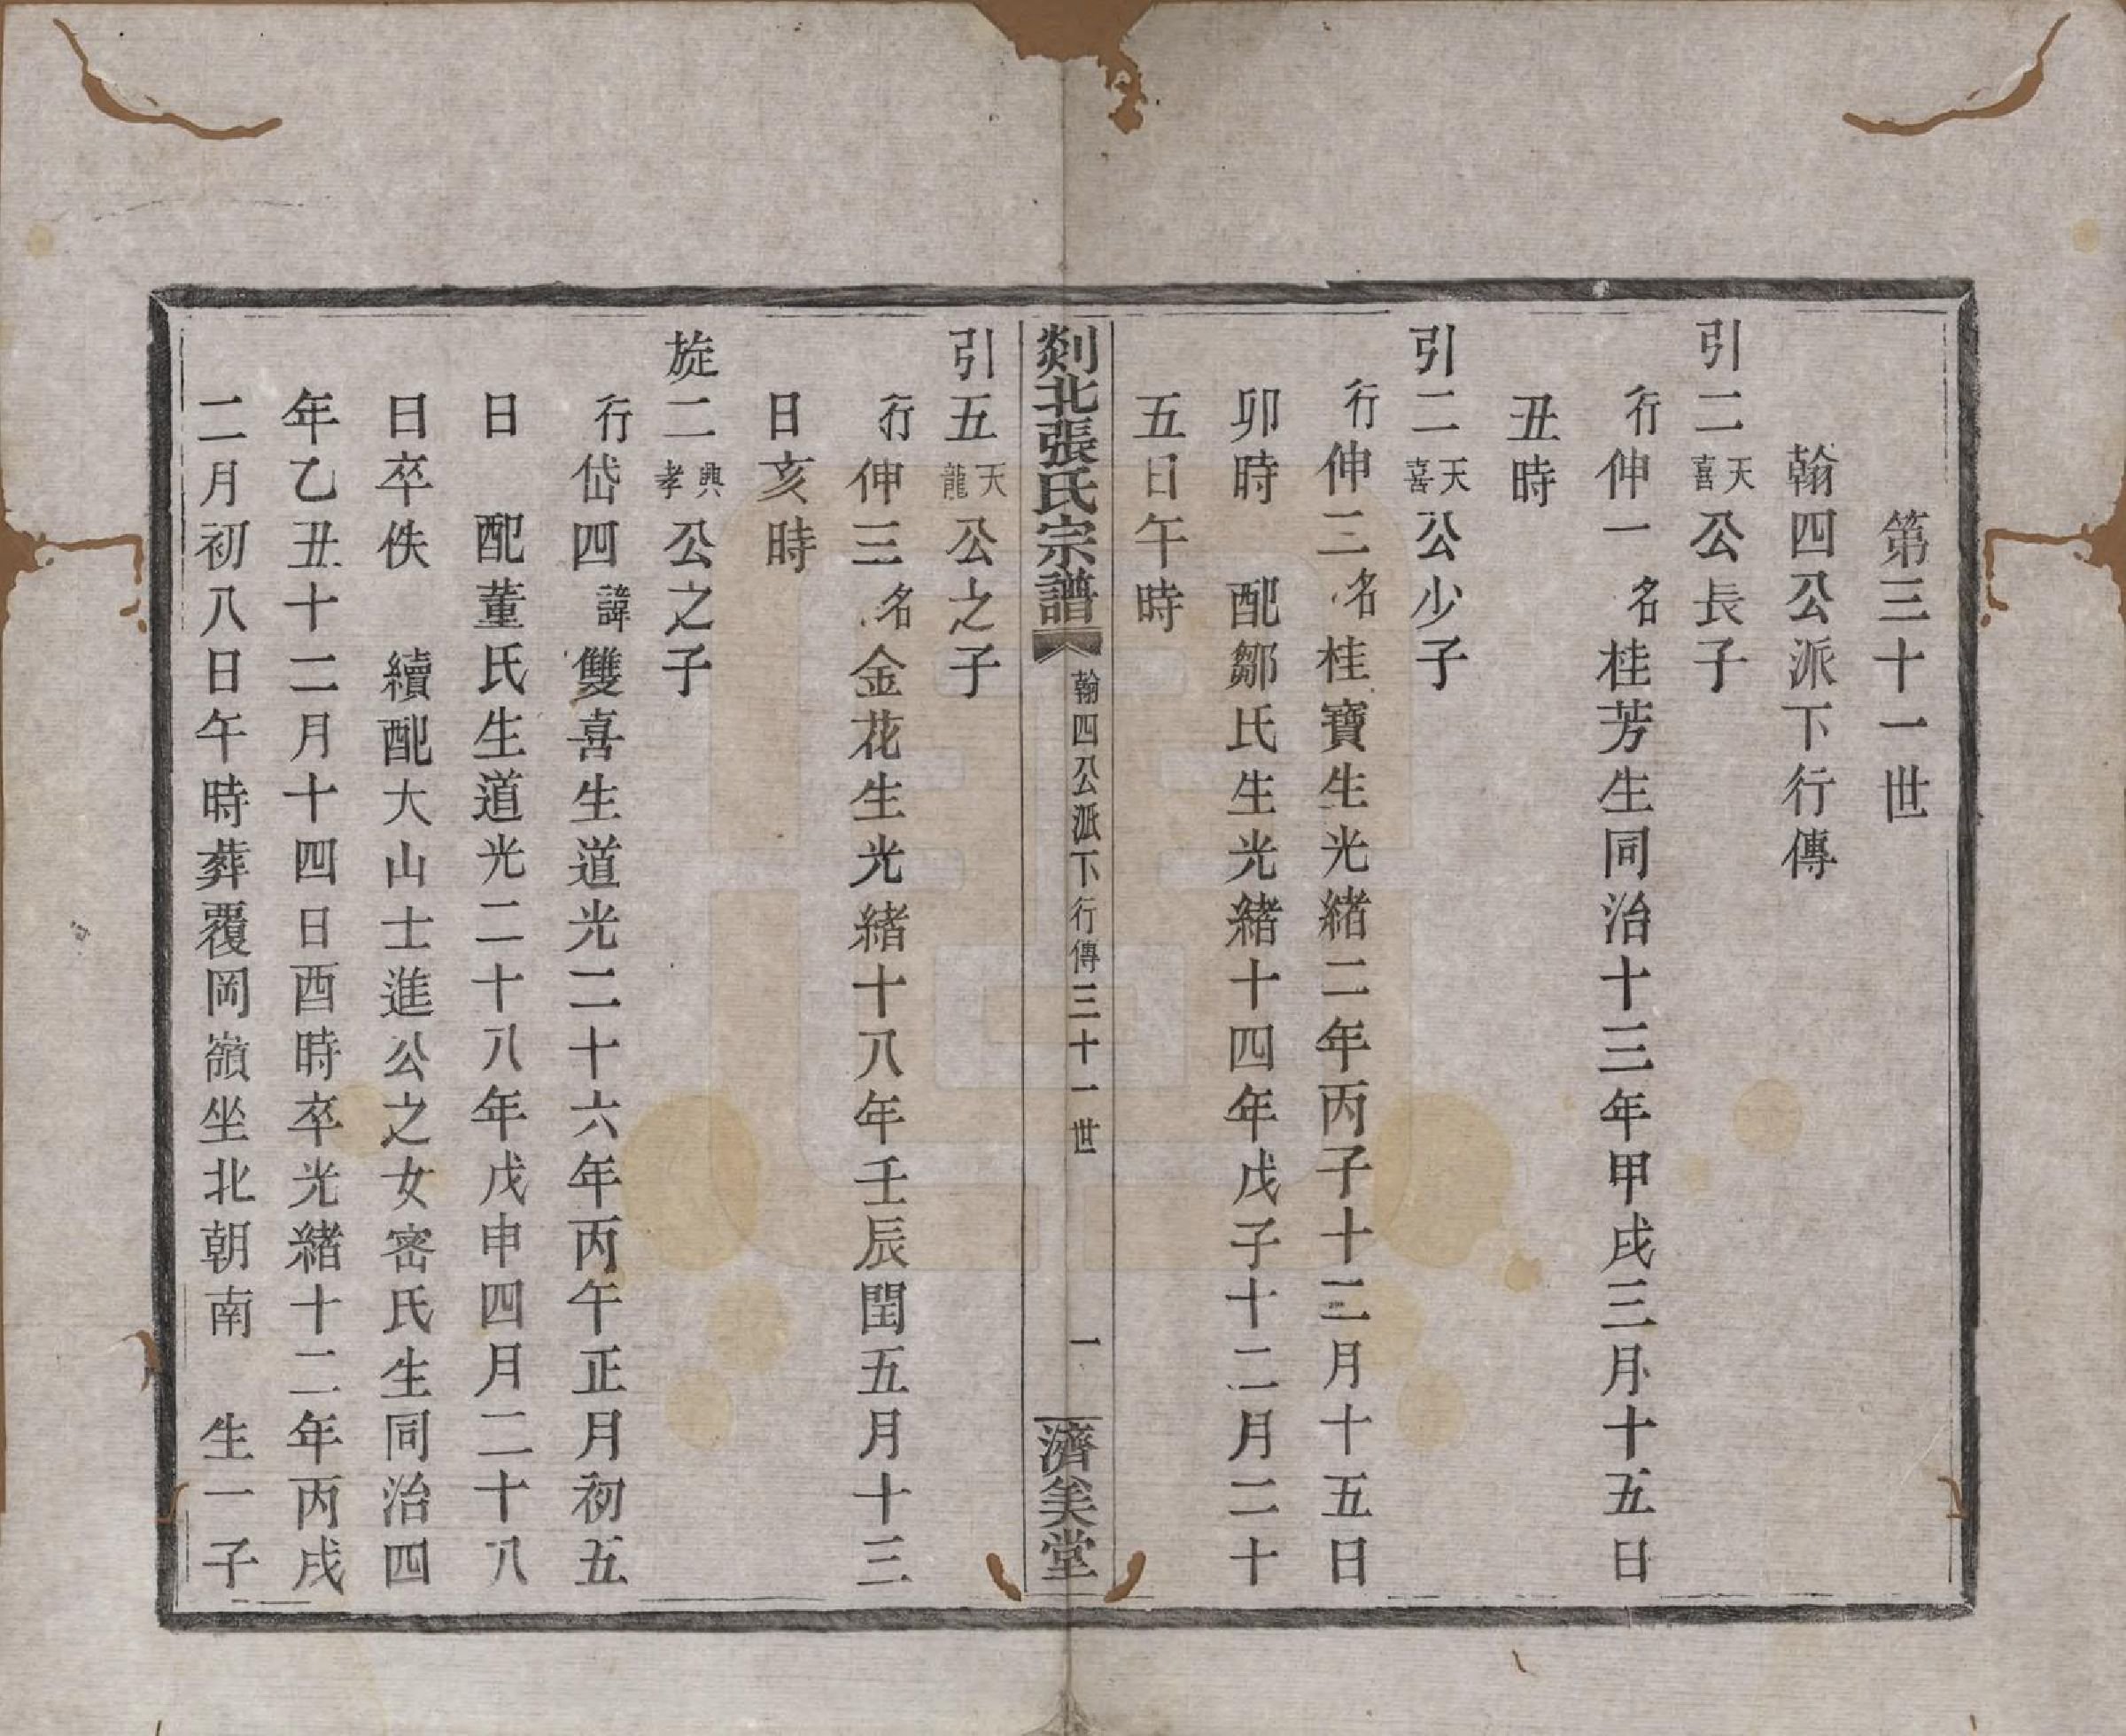 第三十一世
翰四公派下行傳
引二天喜公長子
行伸一名桂芳生同治十三年甲戌三月十五日
丑時
引二天喜公少子
行伸二名桂寶生光緒二年丙子十二月十五日
卯時 配鄒氏生光緒十四年戊子十二月二十
五日午時
剡北張氏宗譜 翰四公派下行傳三十一世 一 濟美堂
引五天龍公之子
行伸三名金花生光緒十八年壬辰閏五月十三
日亥時
旋二興孝公之子
行岱四諱雙喜生道光二十六年丙午正月初五
日 配董氏生道光二十八年戊申四月二十八
日卒佚 續配大山士進公之女密氏生同治四
年乙丑十二月十四日酉時卒光緒十二年丙戌
二月初八日午時葬覆岡嶺坐北朝南 生一子